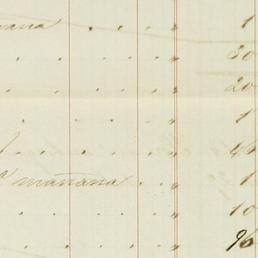 mañana . . " 1
. . . " 30
. . . " 20
. . . " 1
. . . " 46
mañana . . " 1
. . . " 10
. . . " 96